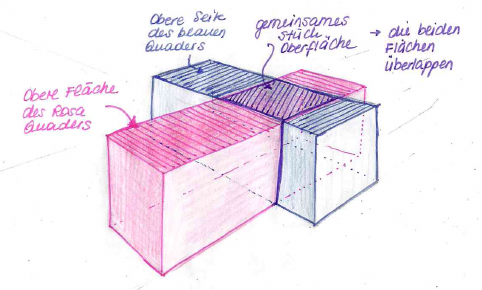 Obere Seite
des blauen
Quaders
gemeinsames
Stück
Oberfläche
→ die beiden
Flächen
überlappen
Obere Fläche
des Rosa
Quaders